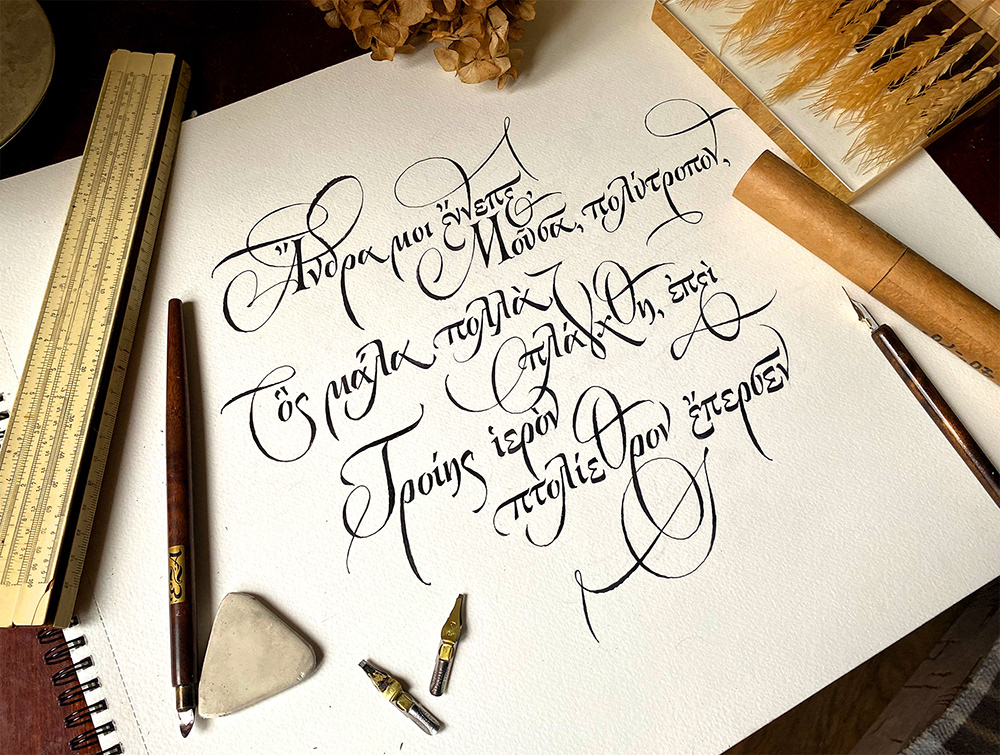 Ἄνδρα μοι ἔννεπε
Μοῦσα, πολύτροπον,
ὃς μάλα πολλὰ
πλάγχθη, ἐπεὶ
Τροίης ἱερὸν
πτολίεθρον ἔπερσεν